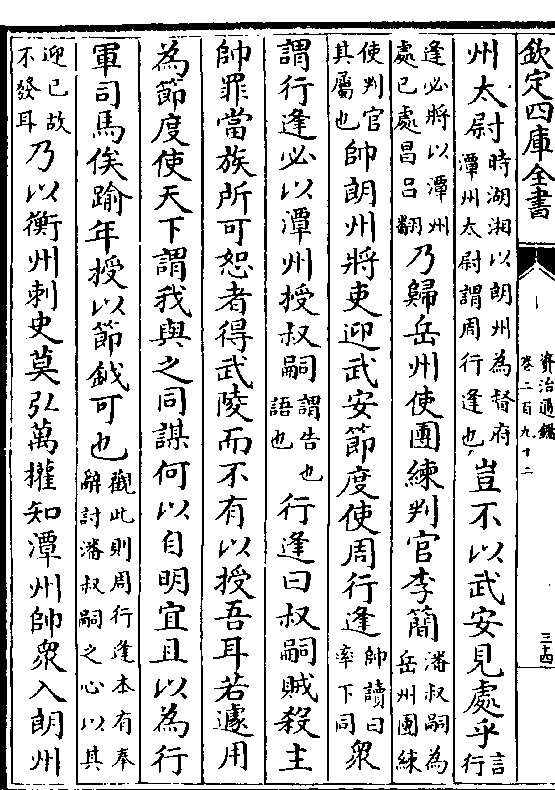 欽定四庫全書
資治通鑑
卷二百九十二
三十四
州太尉時湖湘以朗州為督府潭州太尉謂周行逢也豈不以武安見處乎言行
逢必將以潭州處已處昌呂翻乃歸岳州使團練判官李簡潘叔嗣為岳州團練
使判官其屬也帥朗州將吏迎武安節度使周行逢帥讀曰率下同衆
謂行逢必以潭州授叔嗣謂告也語也行逢曰叔嗣賊殺主
帥罪當族所可恕者得武陵而不有以授吾耳若遽用
為節度使天下謂我與之同謀何以自明宜且以為行
軍司馬俟踰年授以節鉞可也觀此則周行逢本有奉辭討潘叔嗣之心以其
迎已故不發耳乃以衡州刺史莫弘萬權知潭州帥衆入朗州